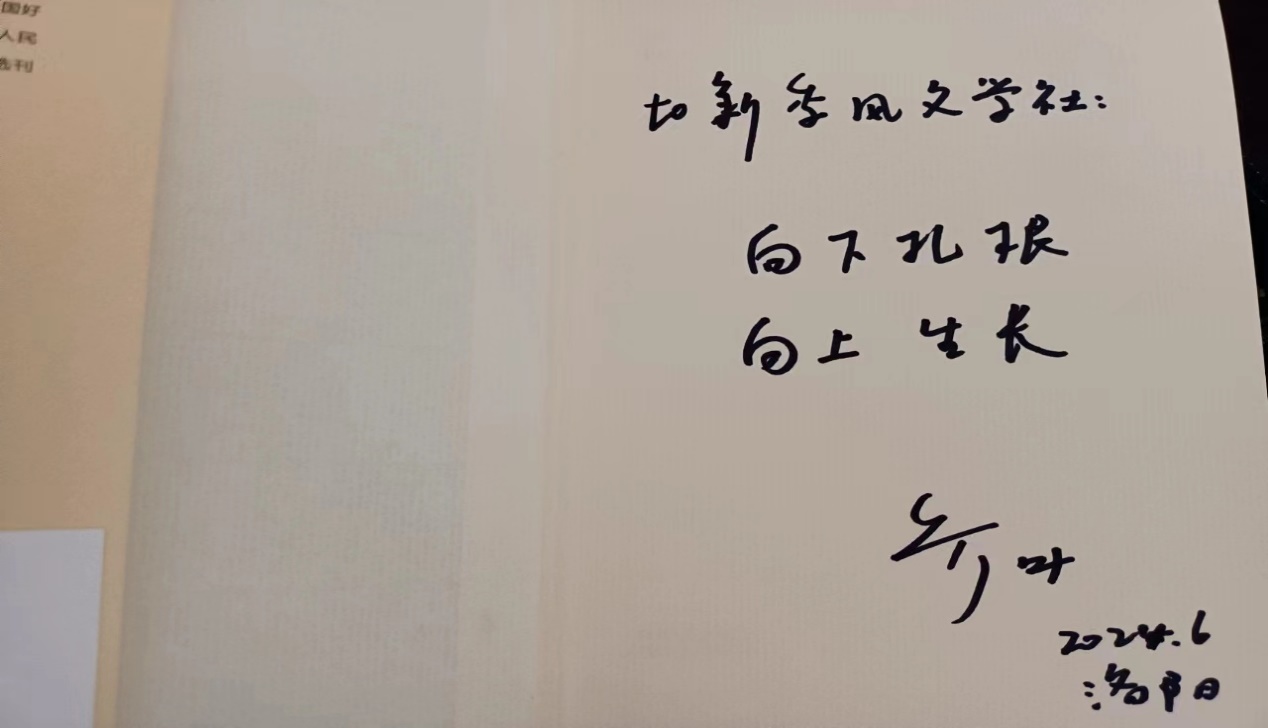 国好
人民
选刊
to 新季风文学社：
向下扎根
向上生长
乔叶
2024.6
洛阳